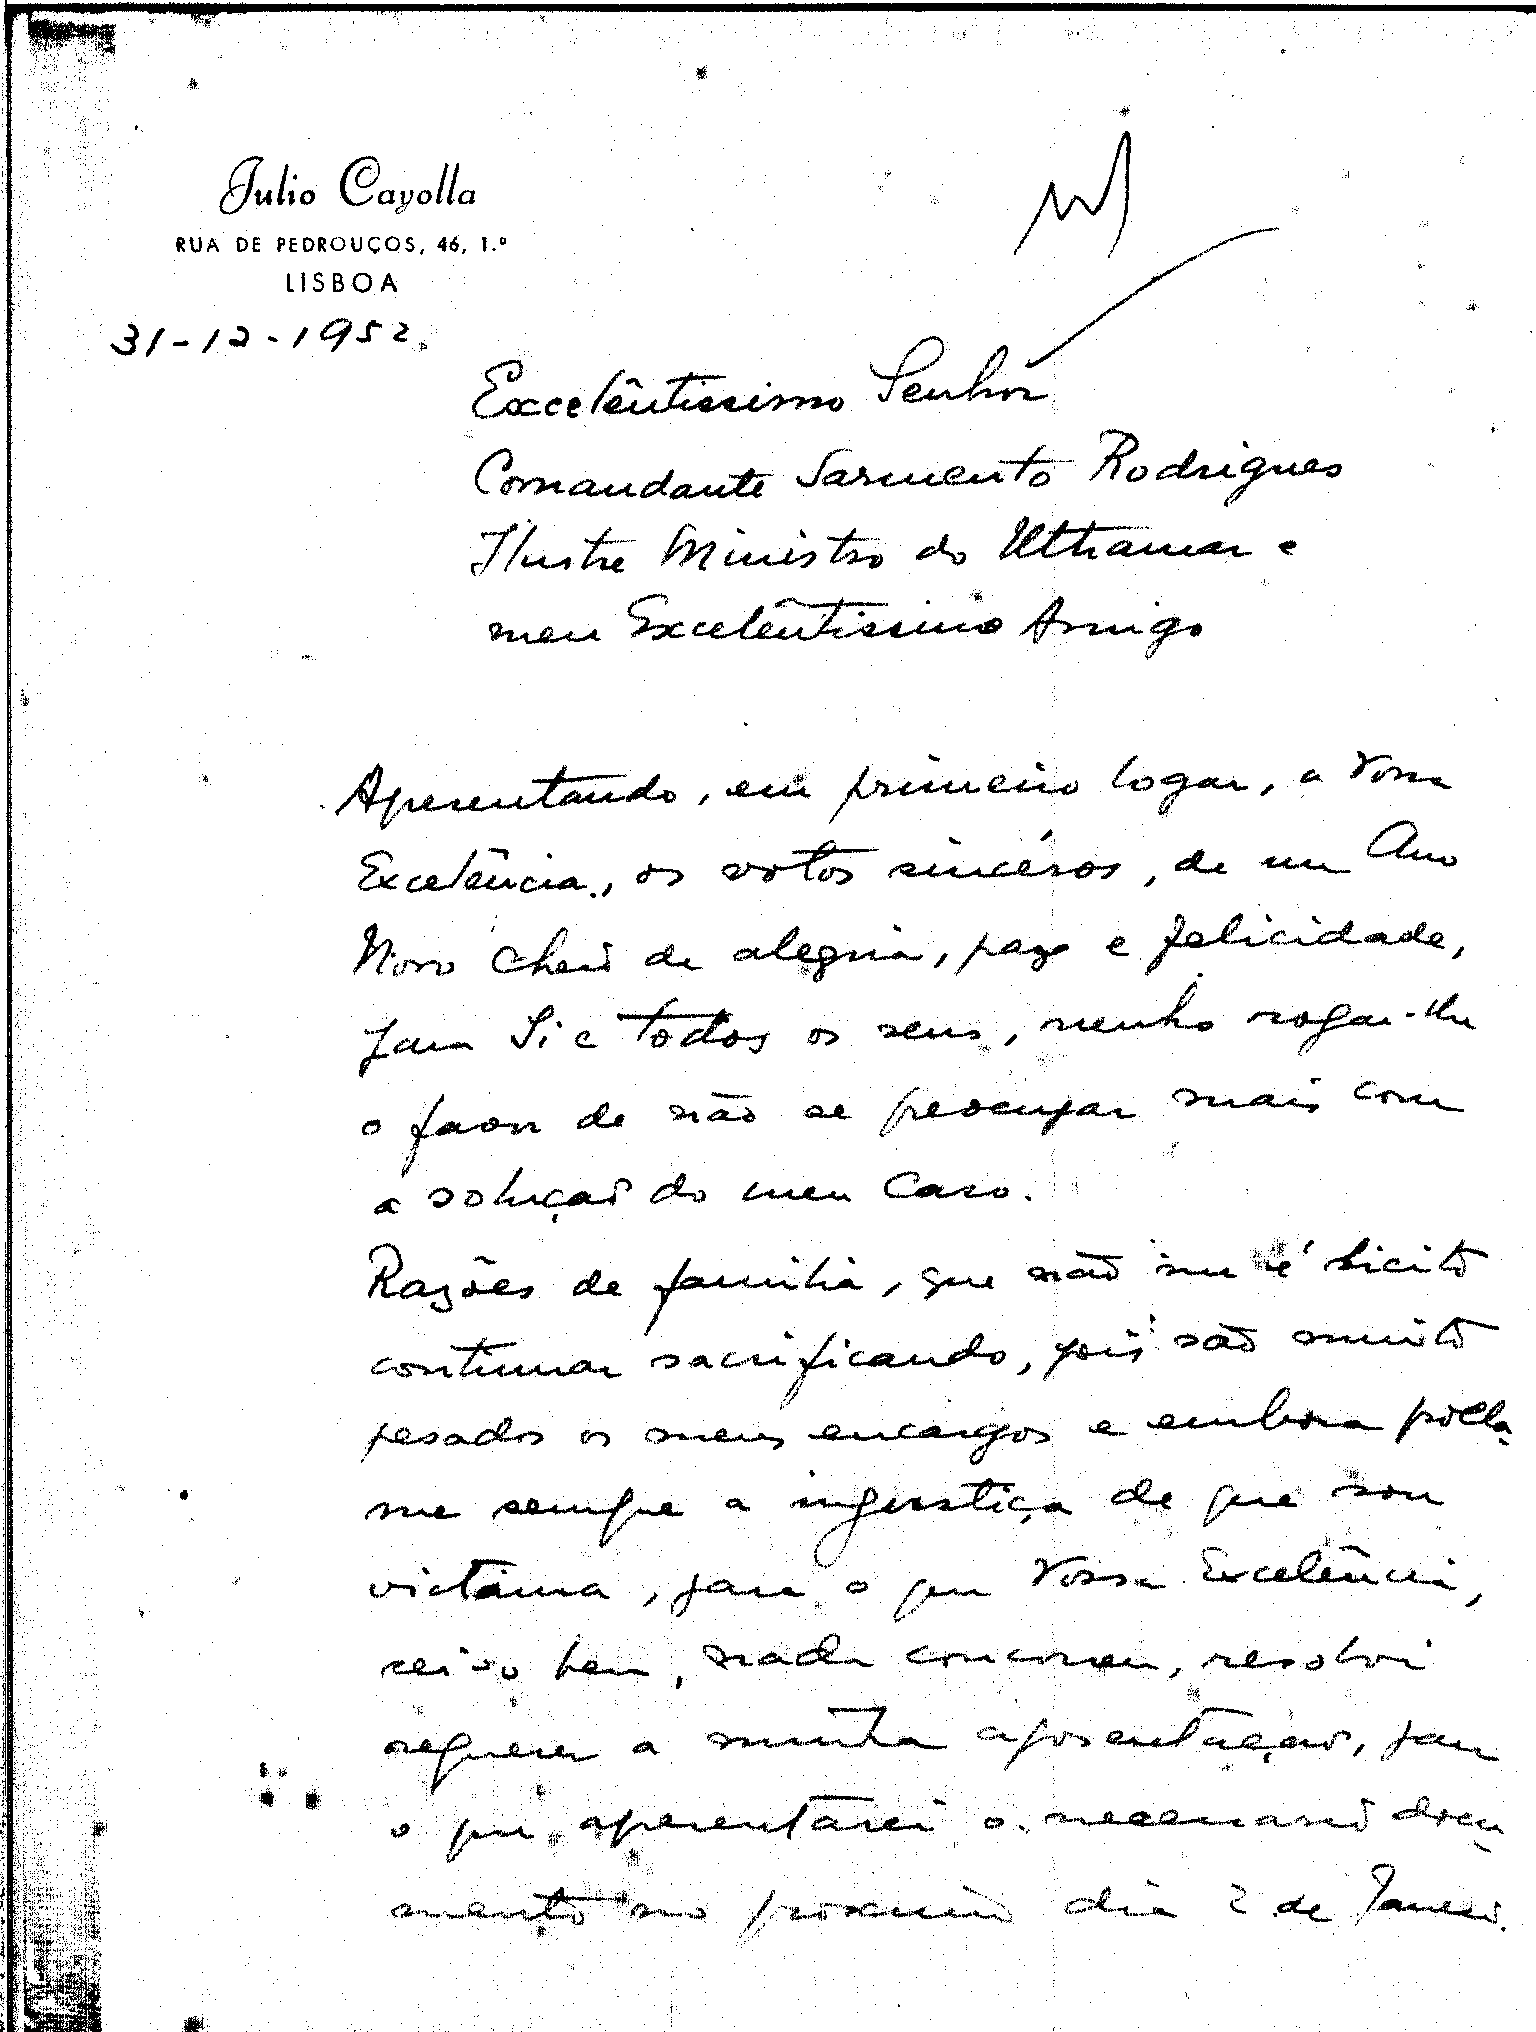 Julio Cayolla
RUA DE PEDROUÇOS, 46, 1.º
LISBOA
31-12-1952.
Excelêntissimo Senhôr
Comandante Sarmento Rodrigues
Ilustre Ministro do Ultramar e
meu Excelêntissimo Amigo
Apresentando, em primeiro logar, a Vossa
Excelência, os votos sincéros, de um Ano
Novo cheio de alegria, paz e felicidade,
para Si e todos os seus, venho rogar-lhe
o favor de não se preocupar mais com
a solução do meu caso.
Razões de familia, que não me é licito
continuar sacrificando, pois são muito
pesados os meus encargos e embora
me sempre a injustiça de que sou
victima, para o que Vossa Excelência,
sei-o bem, nada concorreu, resolvi
requerer a minha aposentação, para
o que apresentarei o necessario docu-
mento no proximo dia 2 de Janeiro.